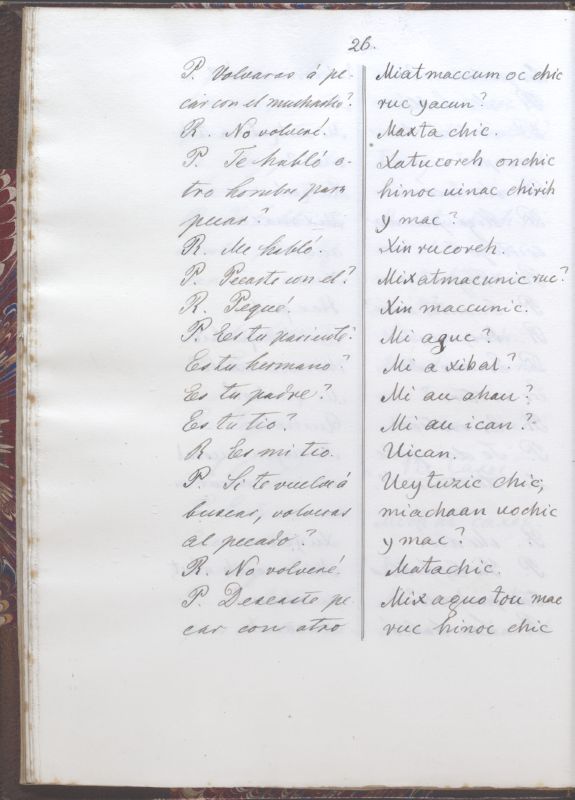 26.
P. Volveras á pe-
car con el muchacho?
R. No volveré.
P. Te habló o-
tro hombre para
pecar?
R. Me habló.
P. Pecaste con el?
R. Pequé.
P. Es tu pariente?
Es tu hermano?
Es tu padre?
Es tu tio?
R. Es mi tio.
P. Si te vuelve á
buscar, volveras
al pecado?
R. No volveré.
P. Deseaste pe
car con otro
Miatmaccum oc chic
ruc yacun?
Maxta chic.
Xatucoreh onchic
hinoc uinac chirih
y mac?
Xin rucoreh.
Mixatmacunic ruc?
Xin maccunic.
Mi aguc?
Mi a xibal?
Mi au ahau?
Mi au ican?
Uican.
Ueytuzic chic,
miachaan uochic
y mac?
Matachic.
Mix aguo tou mac
ruc hinoc chic